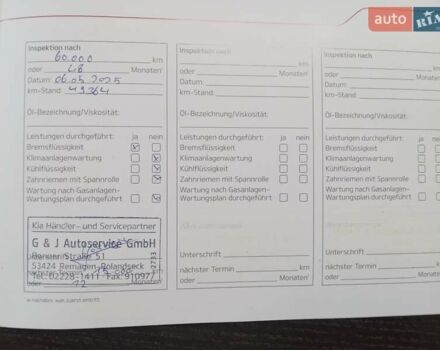 auto RIA
Inspektion nach
60.000 km
oder 48 Monaten
Datum: 06.05.2025
km-Stand 49364
Öl-Bezeichnung/Viskosität:
Leistungen durchgeführt: ja nein
Bremsflüssigkeit
Klimaanlagenwartung
Kühlflüssigkeit
Zahnriemen mit Spannrolle
Wartung nach Gasanlagen-
Wartungsplan durchgeführt
Kia Händler- und Servicepartner
G & J Autoservice GmbH
Bonner Straße 51
53424 Remagen-Rolandseck
Tel: 02228-1411 · Fax: 91097
nächster Termin km
oder 12 Monaten
Inspektion nach
km
oder Monaten
Datum:
km-Stand
Öl-Bezeichnung/Viskosität:
Leistungen durchgeführt: ja nein
Bremsflüssigkeit
Klimaanlagenwartung
Kühlflüssigkeit
Zahnriemen mit Spannrolle
Wartung nach Gasanlagen-
Wartungsplan durchgeführt
Unterschrift
nächster Termin km
oder Monaten
Inspektion nach
oder
Datum:
km-Stand
Öl-Bezeichnung/Viskosität:
Leistungen durchgeführt:
Bremsflüssigkeit
Klimaanlagenwartung
Kühlflüssigkeit
Zahnriemen mit Spannrolle
Wartung nach Gasanlagen-
Wartungsplan durchgeführt
Unterschrift
nächster Termin
oder